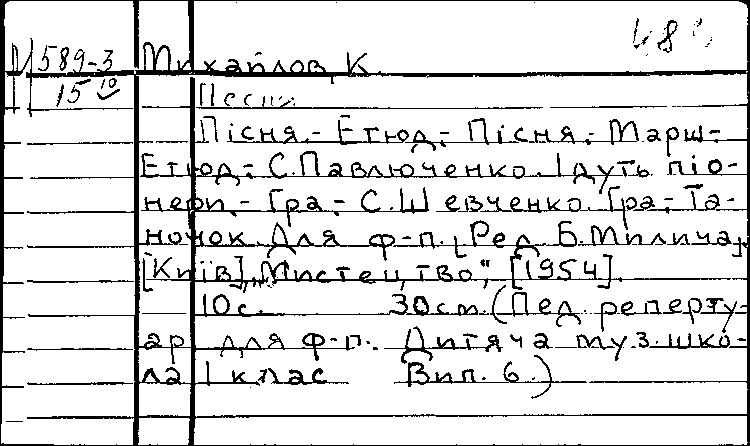 589-3 Михайлов, К.
15 10 Песни
Пісня.- Етюд.- Пісня.- Марш-
Етюд.- С. Павлюченко. Ідуть піо-
нери.- Гра.- С. Шевченко. Гра.- Та-
ночок. Для ф-п. [Ред. Б. Милича].
[Київ], „Мистецтво", [1954].
10с. 30см. (Пед. реперту-
ар для ф-п. Дитяча муз. шко-
ла 1 клас Вип. 6.)